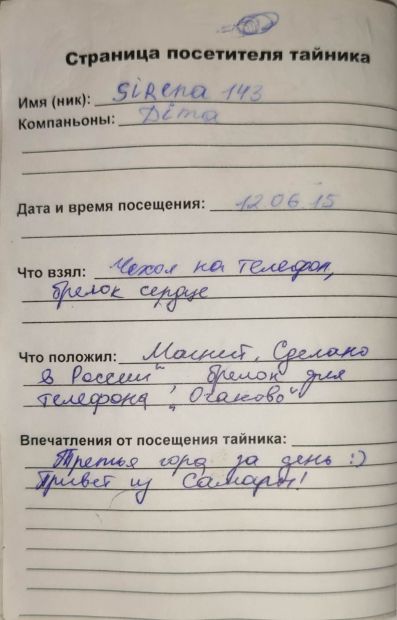 Страница посетителя тайника
Имя (ник): SiRena 143
Компаньоны: Dima
Дата и время посещения: 12.06.15
Что взял: Чехол на телефон,
брелок сердце
Что положил: Магнит „Сделано
в России", брелок для
телефона „Очаково"
Впечатления от посещения тайника:
Третья города за день :)
Привет из Самары!